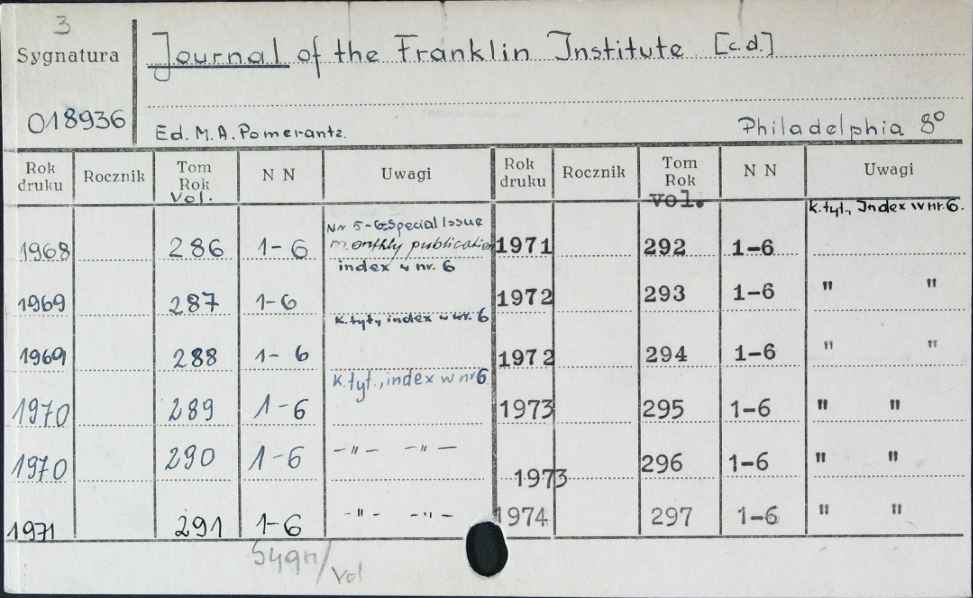 3
Sygnatura
Journal of the Franklin Institute [c.d.]
018936
Ed. M.A. Pomerantz.
Philadelphia 8°
Rok druku Rocznik Tom Rok Vol. N N Uwagi Rok druku Rocznik Tom Rok vol. N N Uwagi
k.tyt., Index w nr. 6.
Nr 5-6 Special Issue
1968 286 1-6 monthly publication 1971 292 1-6
index w nr. 6
1969 287 1-6 1972 293 1-6 " "
k.tyt, index w nr. 6
1969 288 1-6 1972 294 1-6 " "
k.tyt., index w nr 6
1970 289 1-6 1973 295 1-6 " "
1970 290 1-6 -"- -"- 1973 296 1-6 " "
1971 291 1-6 -"- -"- 1974 297 1-6 " "
Sygn/vol